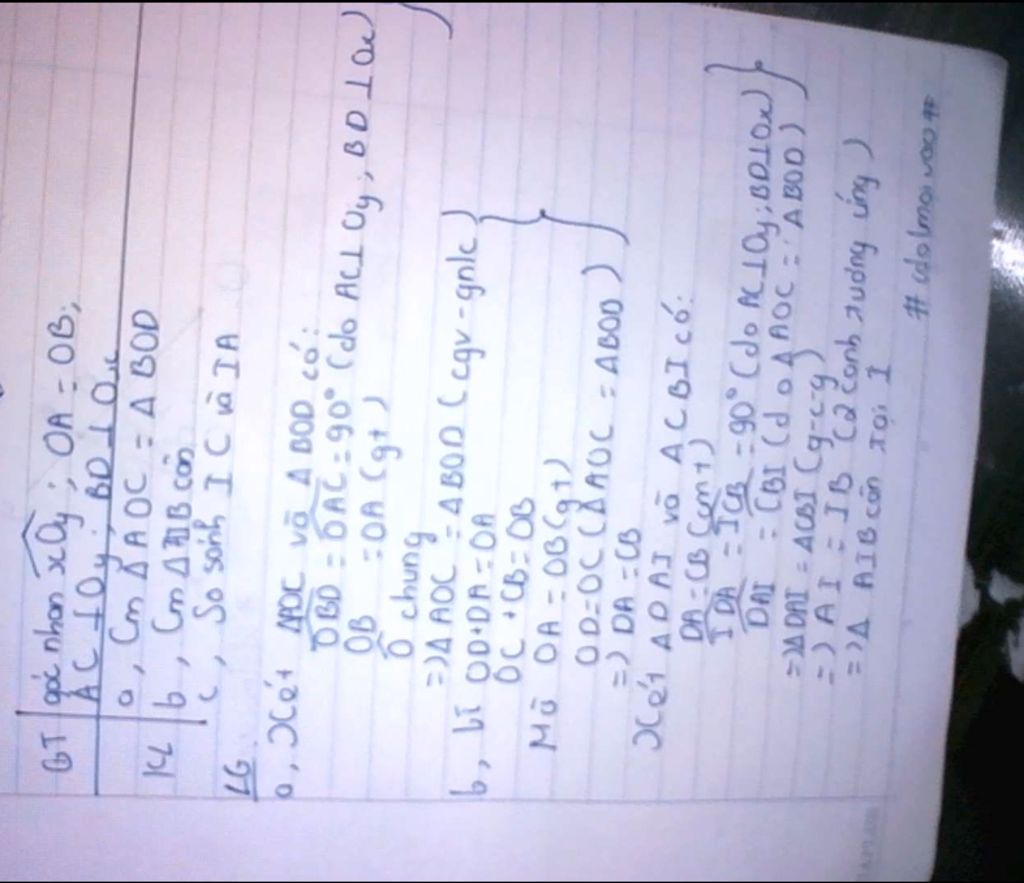 GT góc nhọn xOy ; OA = OB;
AC ⊥ Oy ; BD ⊥ Ox
KL a, Cm Δ AOC = Δ BOD
b, Cm Δ AIB cân
c, So sánh IC và IA
LG
a, Xét ΔAOC và Δ BOD có:
OBD = OAC = 90° (do AC⊥Oy; BD⊥Ox)
OB = OA (gt)
O chung
=> Δ AOC = Δ BOD (cgv - gnlc)
b, Vì OD+DA = OA
OC + CB = OB
Mà OA = OB (gt)
OD = OC (Δ AOC = Δ BOD)
=> DA = CB
Xét Δ DAI và Δ CBI có:
DA = CB (cmt)
IDA = ICB = 90° (do AC⊥Oy; BD⊥Ox)
DAI = CBI (do Δ AOC = Δ BOD)
=> Δ DAI = Δ CBI (g-c-g)
=> AI = IB (2 cạnh tương ứng)
=> Δ AIB cân tại I